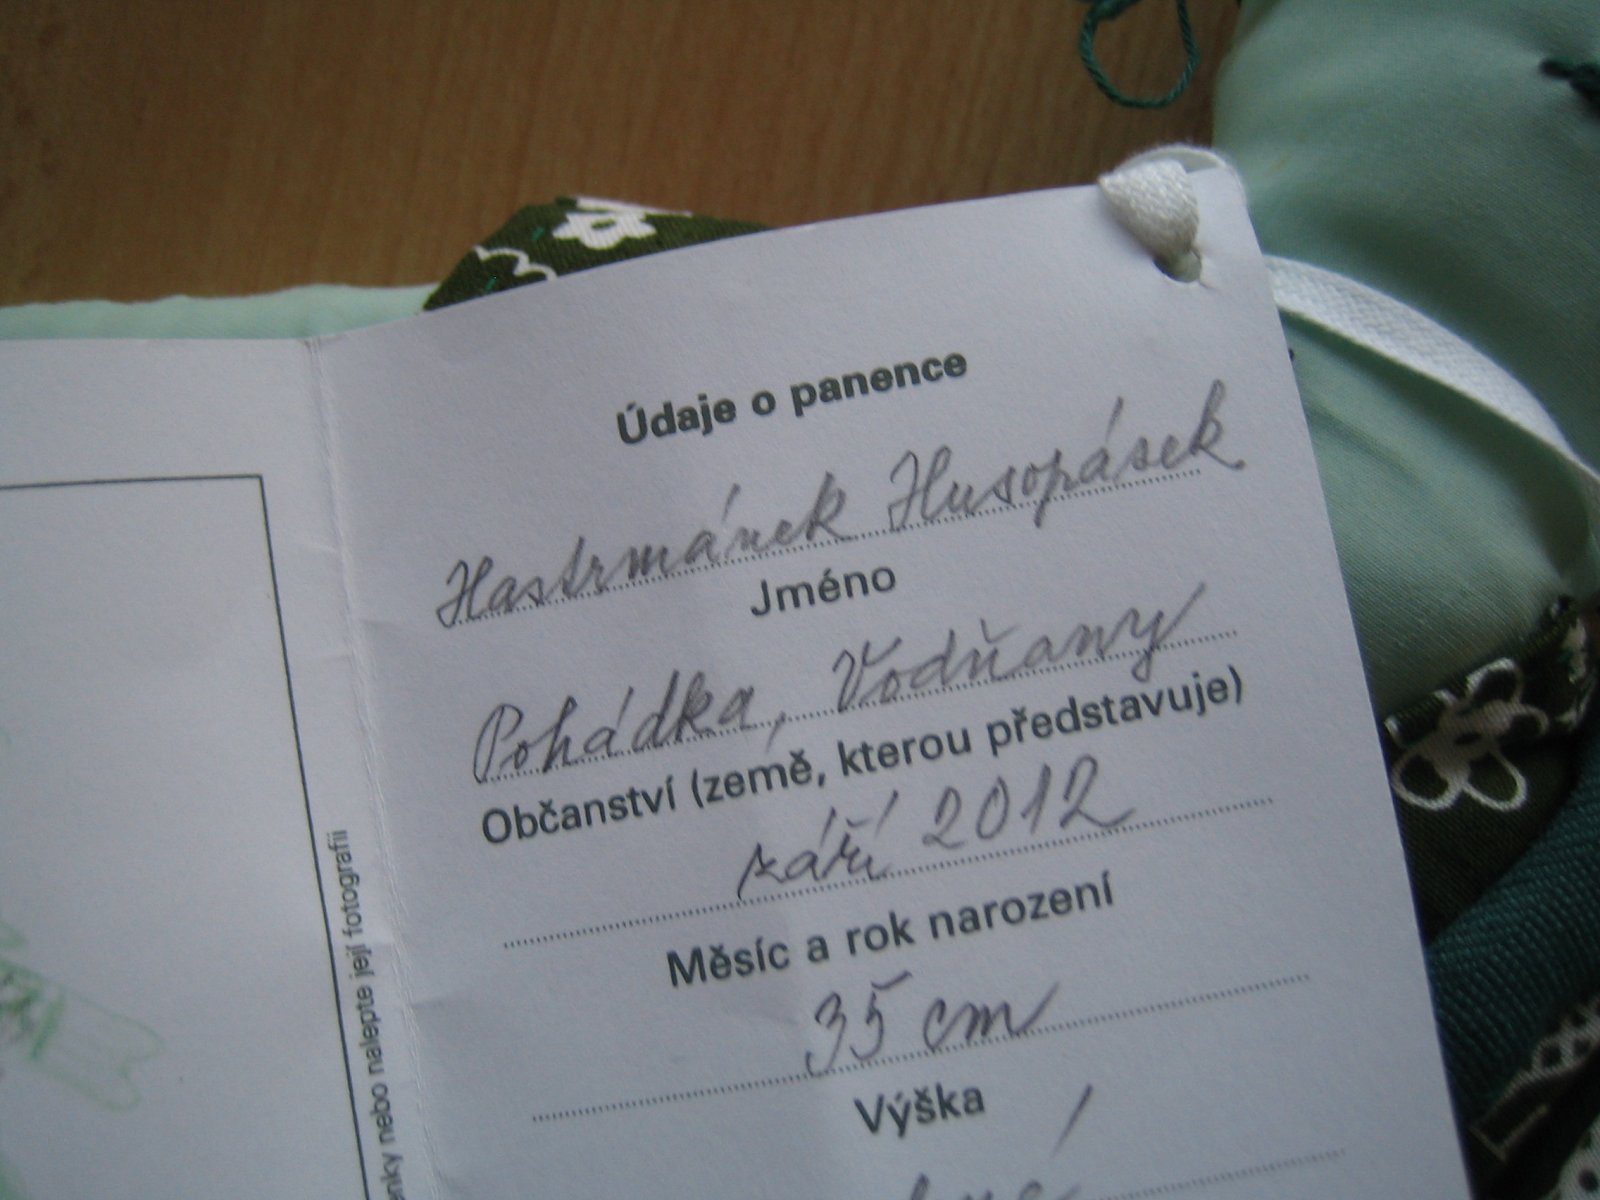 Údaje o panence
Hastrmánek Husopásek
Jméno
Pohádka, Vodňany
Občanství (země, kterou představuje)
září 2012
Měsíc a rok narození
35 cm
Výška
nebo nalepte její fotografii